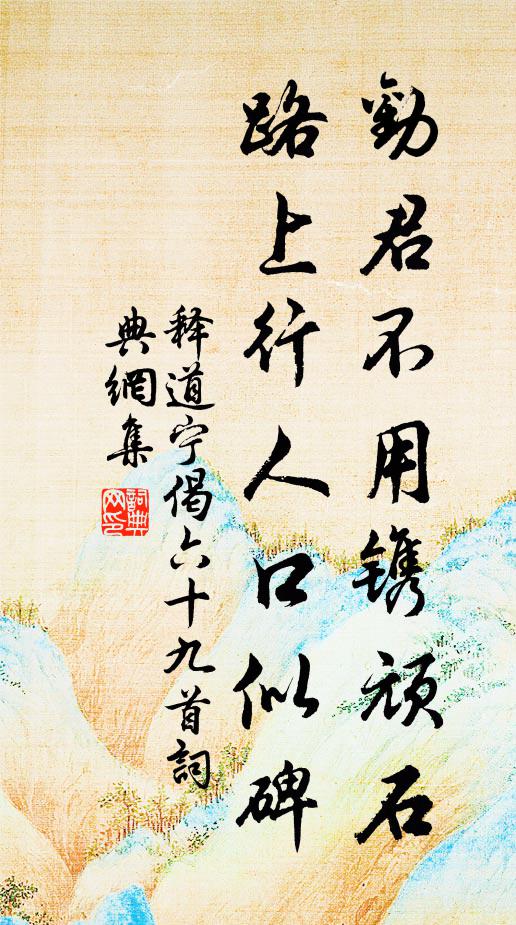 勸君不用镌顽石
路上行人口似碑
释道宁偈六十九首詞
典網集
詞典
网印